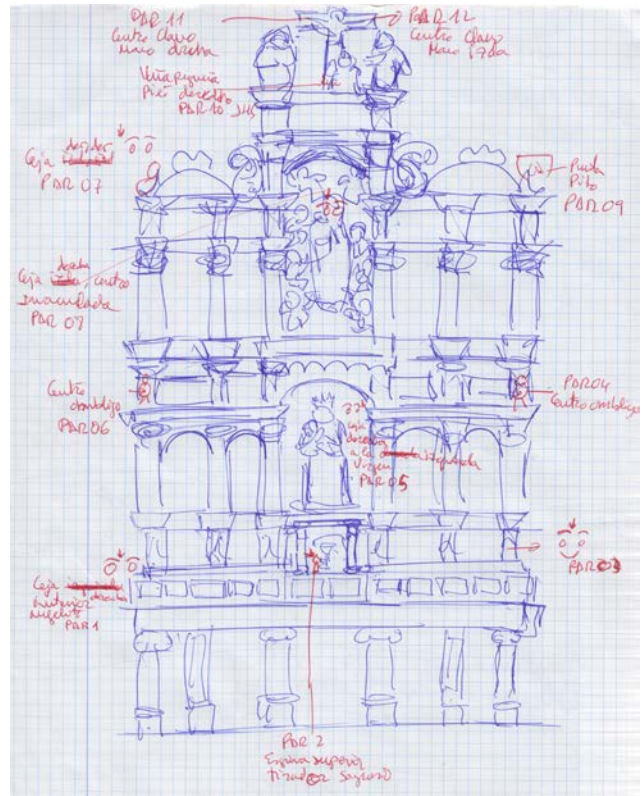 PAR 11
Centro Clavo
Mano drcha
PAR 12
Centro Clavo
Mano izda
Uña pequeña
Pie derecho
PAR 10
JHS
derecha
Ceja
PAR 07
Punta
Pito
PAR 09
derecha
Ceja centro
Inmaculada
PAR 08
Centro
ombligo
PAR 06
PAR 04
Centro ombligo
ceja
derecha
a la izquierda
Virgen
PAR 05
PAR 03
Ceja
derecha
PAR 1
PAR 2
superior
tirador Sagrario